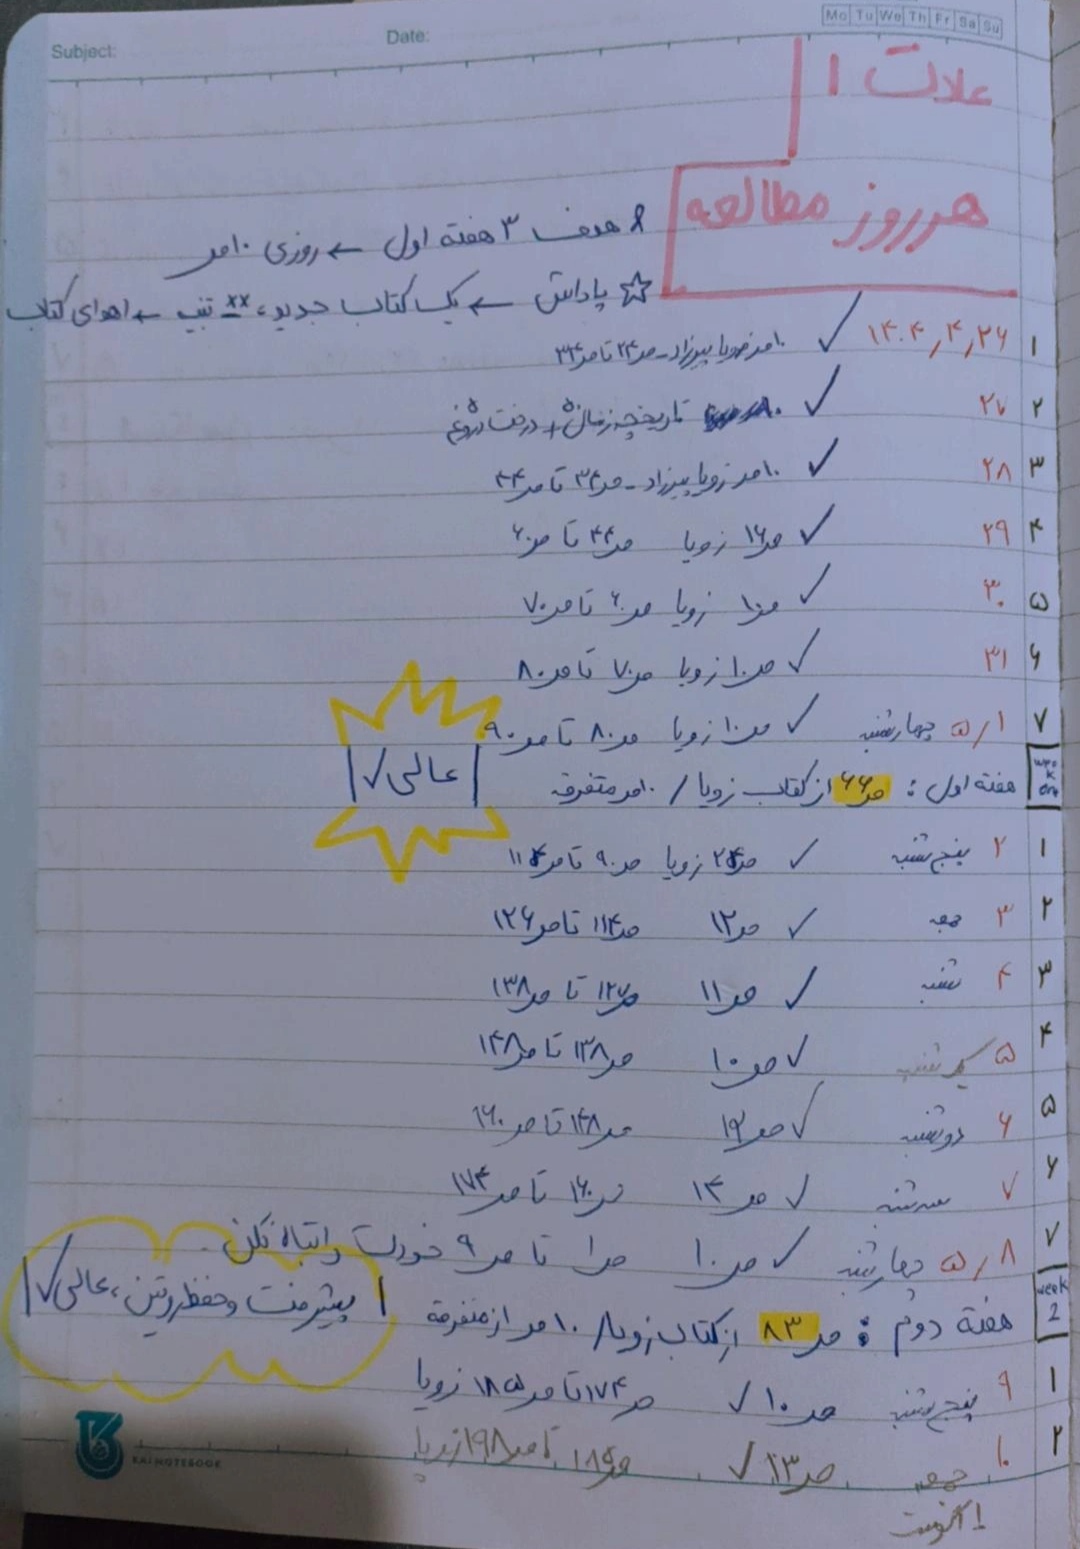 Subject:
Date:
Mo Tu We Th Fr Sa Su
علات ۱
هرروز مطالعه
هدف ۳ هفته اول ← روزی ۱۰ص
پاداش ← یک کتاب جدید، ** تیپ ← اهدای کتاب
۱ ۱۴۰۴٫۴٫۲۶ ✓ ۱۰ص زویا پیرزاد - ص۲۴ تا ص۳۴
۲ ۲۷ ✓ تاریخچه زمان ۵ + درخت دروغ ۵
۳ ۲۸ ✓ ۱۰ص زویا پیرزاد - ص۳۴ تا ص۴۴
۴ ۲۹ ✓ ص۱۶ زویا ص۴۴ تا ص۶۰
۵ ۳۰ ✓ ص۱۰ زویا ص۶۰ تا ص۷۰
۶ ۳۱ ✓ ص۱۰ زویا ص۷۰ تا ص۸۰
۷ ۵/۱ چهارشنبه ✓ ص۱۰ زویا ص۸۰ تا ص۹۰
week one هفته اول : ص۶۶ از کتاب زویا / ۱۰ص متفرقه
عالی ✓
۱ ۲ پنج شنبه ✓ ص۲۴ زویا ص۹۰ تا ص۱۱۴
۲ ۳ جمعه ✓ ص۱۲ ص۱۱۴ تا ص۱۲۶
۳ ۴ شنبه ✓ ص۱۱ ص۱۲۷ تا ص۱۳۸
۴ ۵ یکشنبه ✓ ص۱۰ ص۱۳۸ تا ص۱۴۸
۵ ۶ دوشنبه ✓ ص۱۲ ص۱۴۸ تا ص۱۶۰
۶ ۷ سه شنبه ✓ ص۱۴ ص۱۶۰ تا ص۱۷۴
۷ ۵/۸ چهارشنبه ✓ ص۱۰ ص۱ تا ص۹ خودت را تباه نکن
week 2 هفته دوم : ص۸۳ از کتاب زویا / ۱۰ص از متفرقه
پیشرفت و حفظ روتین، عالی ✓
۱ ۹ پنج شنبه ص۱۰ ✓ ص۱۷۴ تا ص۱۸۵ زویا
۲ ۱۰ جمعه ص۱۳ ✓ ص۱۸۵ تا ص۱۹۸ زویا
۱ آگوست
KAI NOTEBOOK